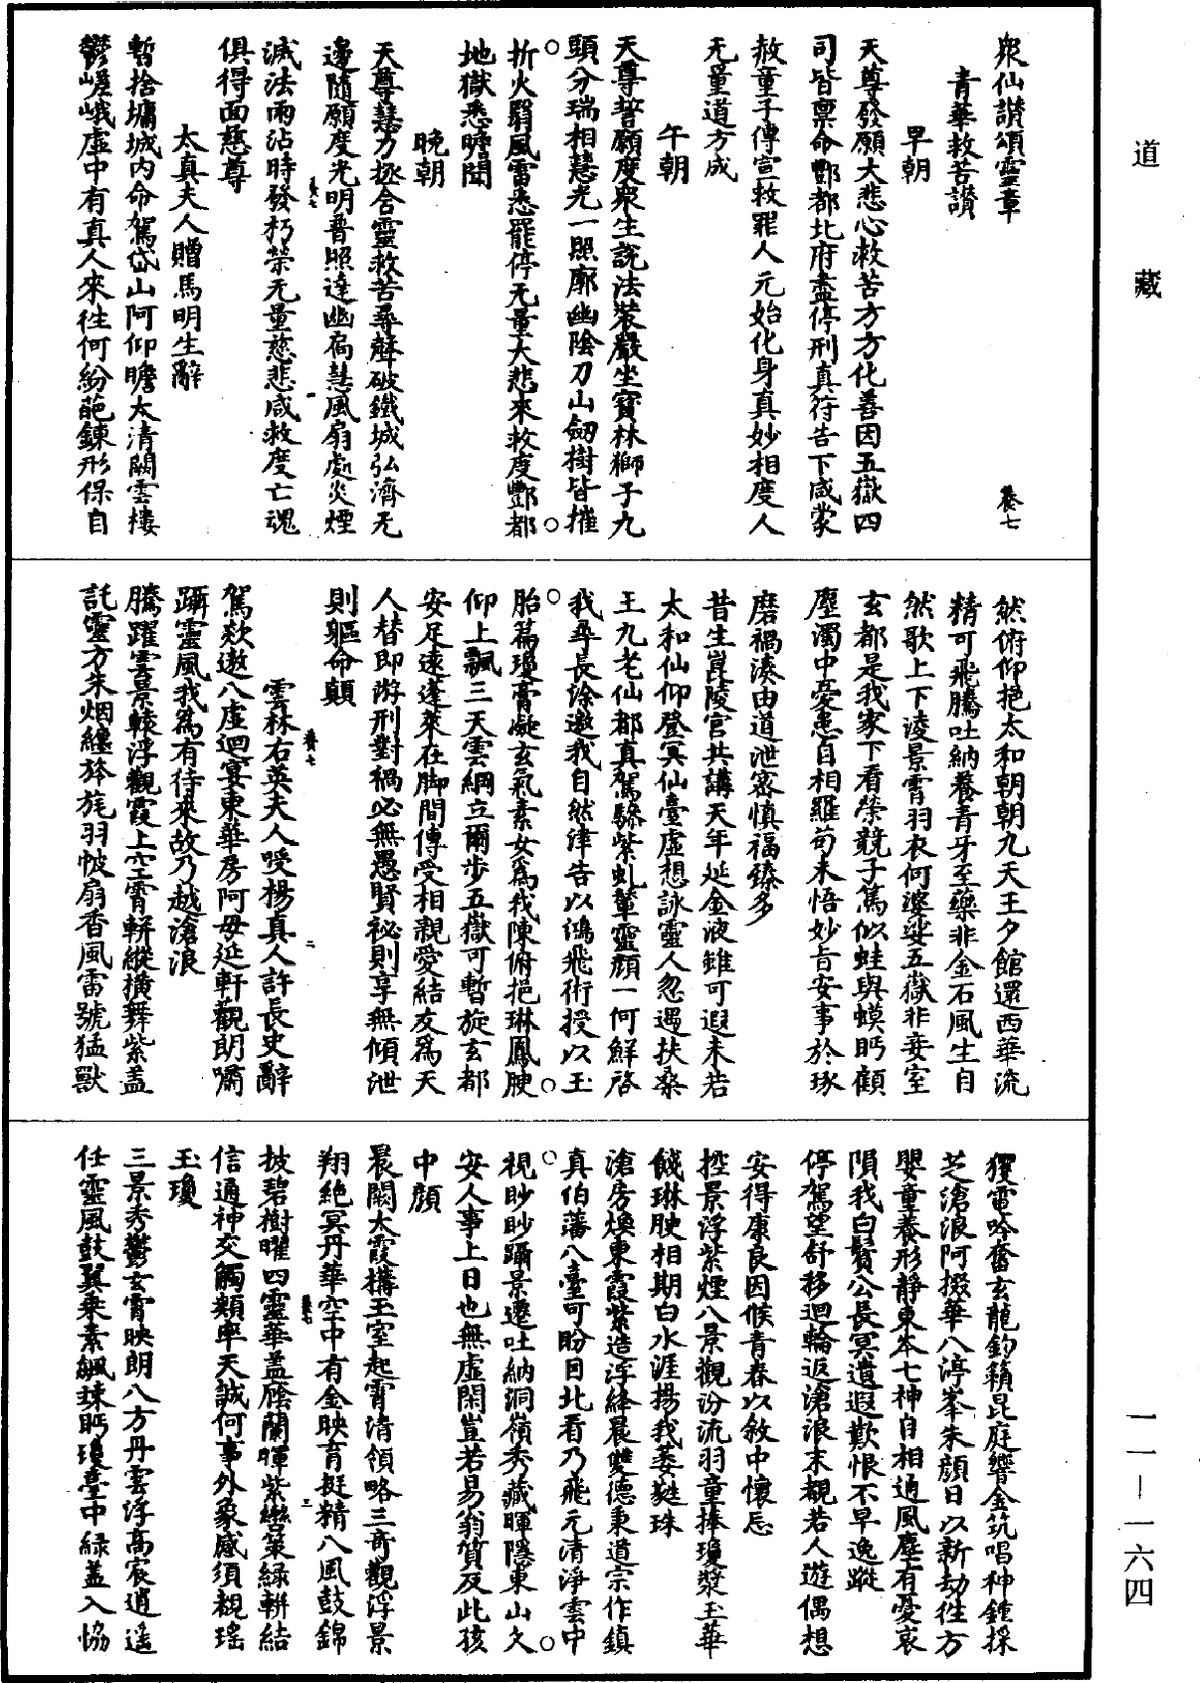 道藏
一一-一六四
眾仙讚頌靈章 卷七
青華救苦讚
早朝
天尊發願大悲心救苦方方化善因五嶽四
司皆禀命酆都北府盡停刑真符告下咸蒙
赦童子傳宣救罪人元始化身真妙相度人
无量道方成
午朝
天尊誓願度衆生說法裝嚴坐寶林獅子九
頭分瑞相慧光一照廓幽陰刀山劒樹皆摧
折火翳風雷悉罷停无量大悲來救度酆都
地獄悉瞻聞
晚朝
天尊慧力拯含靈救苦尋聲破鐵城弘濟无
邊隨願度光明普照達幽扃慧風扇處炎煙
滅法雨沾時發朽榮无量慈悲咸救度亡魂
俱得面慈尊
太真夫人贈馬明生辭
暫捨墉城内命駕岱山阿仰瞻太清闕雲樓
鬱嵯峨虛中有真人來往何紛葩鍊形保自
然俯仰挹太和朝朝九天王夕館還西華流
精可飛騰吐納養青牙至藥非金石風生自
然歌上下凌景霄羽衣何婆娑五嶽非妾室
玄都是我家下看榮競子篤似蛙與蟆眄顧
塵濁中憂患自相羅苟未悟妙旨安事於琢
磨禍湊由道泄密慎福臻多
昔生崑陵宮共講天年延金液雖可遐未若
太和仙仰登冥仙臺虛想詠靈人忽遇扶桑
王九老仙都真駕驂紫虬輦靈顏一何鮮啓
我尋長涂邀我自然津告以鴻飛術授以玉
胎篇瓊膏凝玄氣素女爲我陳俯挹琳鳳腴
仰上飄三天雲綱立爾步五嶽可暫旋玄都
安足遠蓬萊在脚間傳受相親愛結友爲天
人替即游刑對禍必無愚賢祕則享無傾泄
則軀命顛
雲林右英夫人喚楊真人許長史辭
駕欻遨八虛迴宴東華房阿母延軒觀朗嘯
躡靈風我爲有待來故乃越滄浪
騰躍雲景轅浮觀霞上空霄軿縱橫舞紫盖
託靈方朱烟纏斾旄羽帔扇香風雷號猛獸
玃電吟奮玄龍鈞籟昆庭響金筑唱神鍾採
芝滄浪阿掇華八渟峯朱顏日以新劫往方
嬰童養形靜東岑七神自相通風塵有憂哀
隕我白鬢公長冥遺遐歎恨不早逸蹤
停駕望舒移迴輪返滄浪未覩若人遊偶想
安得康良因候青春以敘中懷忘
控景浮紫煙八景觀汾流羽童捧瓊漿玉華
餞琳腴相期白水涯揚我萎蕤珠
滄房煥東霞紫造浮絳晨雙德秉道宗作鎮
真伯藩八臺可盼目北看乃飛元清淨雲中
視眇眇躡景遷吐納洞嶺秀藏暉隱東山久
安人事上日也無虛閑豈若易翁質反此孩
中顏
晨闕太霞搆玉室起霄清領略三奇觀浮景
翔絶冥丹華空中有金映育挺精八風鼓錦
披碧樹曜四靈華盖廕蘭暉紫轡策綠軿結
信通神交觸類率天誠何事外象感須覩瑤
玉瓊
三景秀鬱玄霄映朗八方丹雲浮高宸逍遥
任靈風鼓翼乘素飈竦眄瓊臺中緑盖入恊